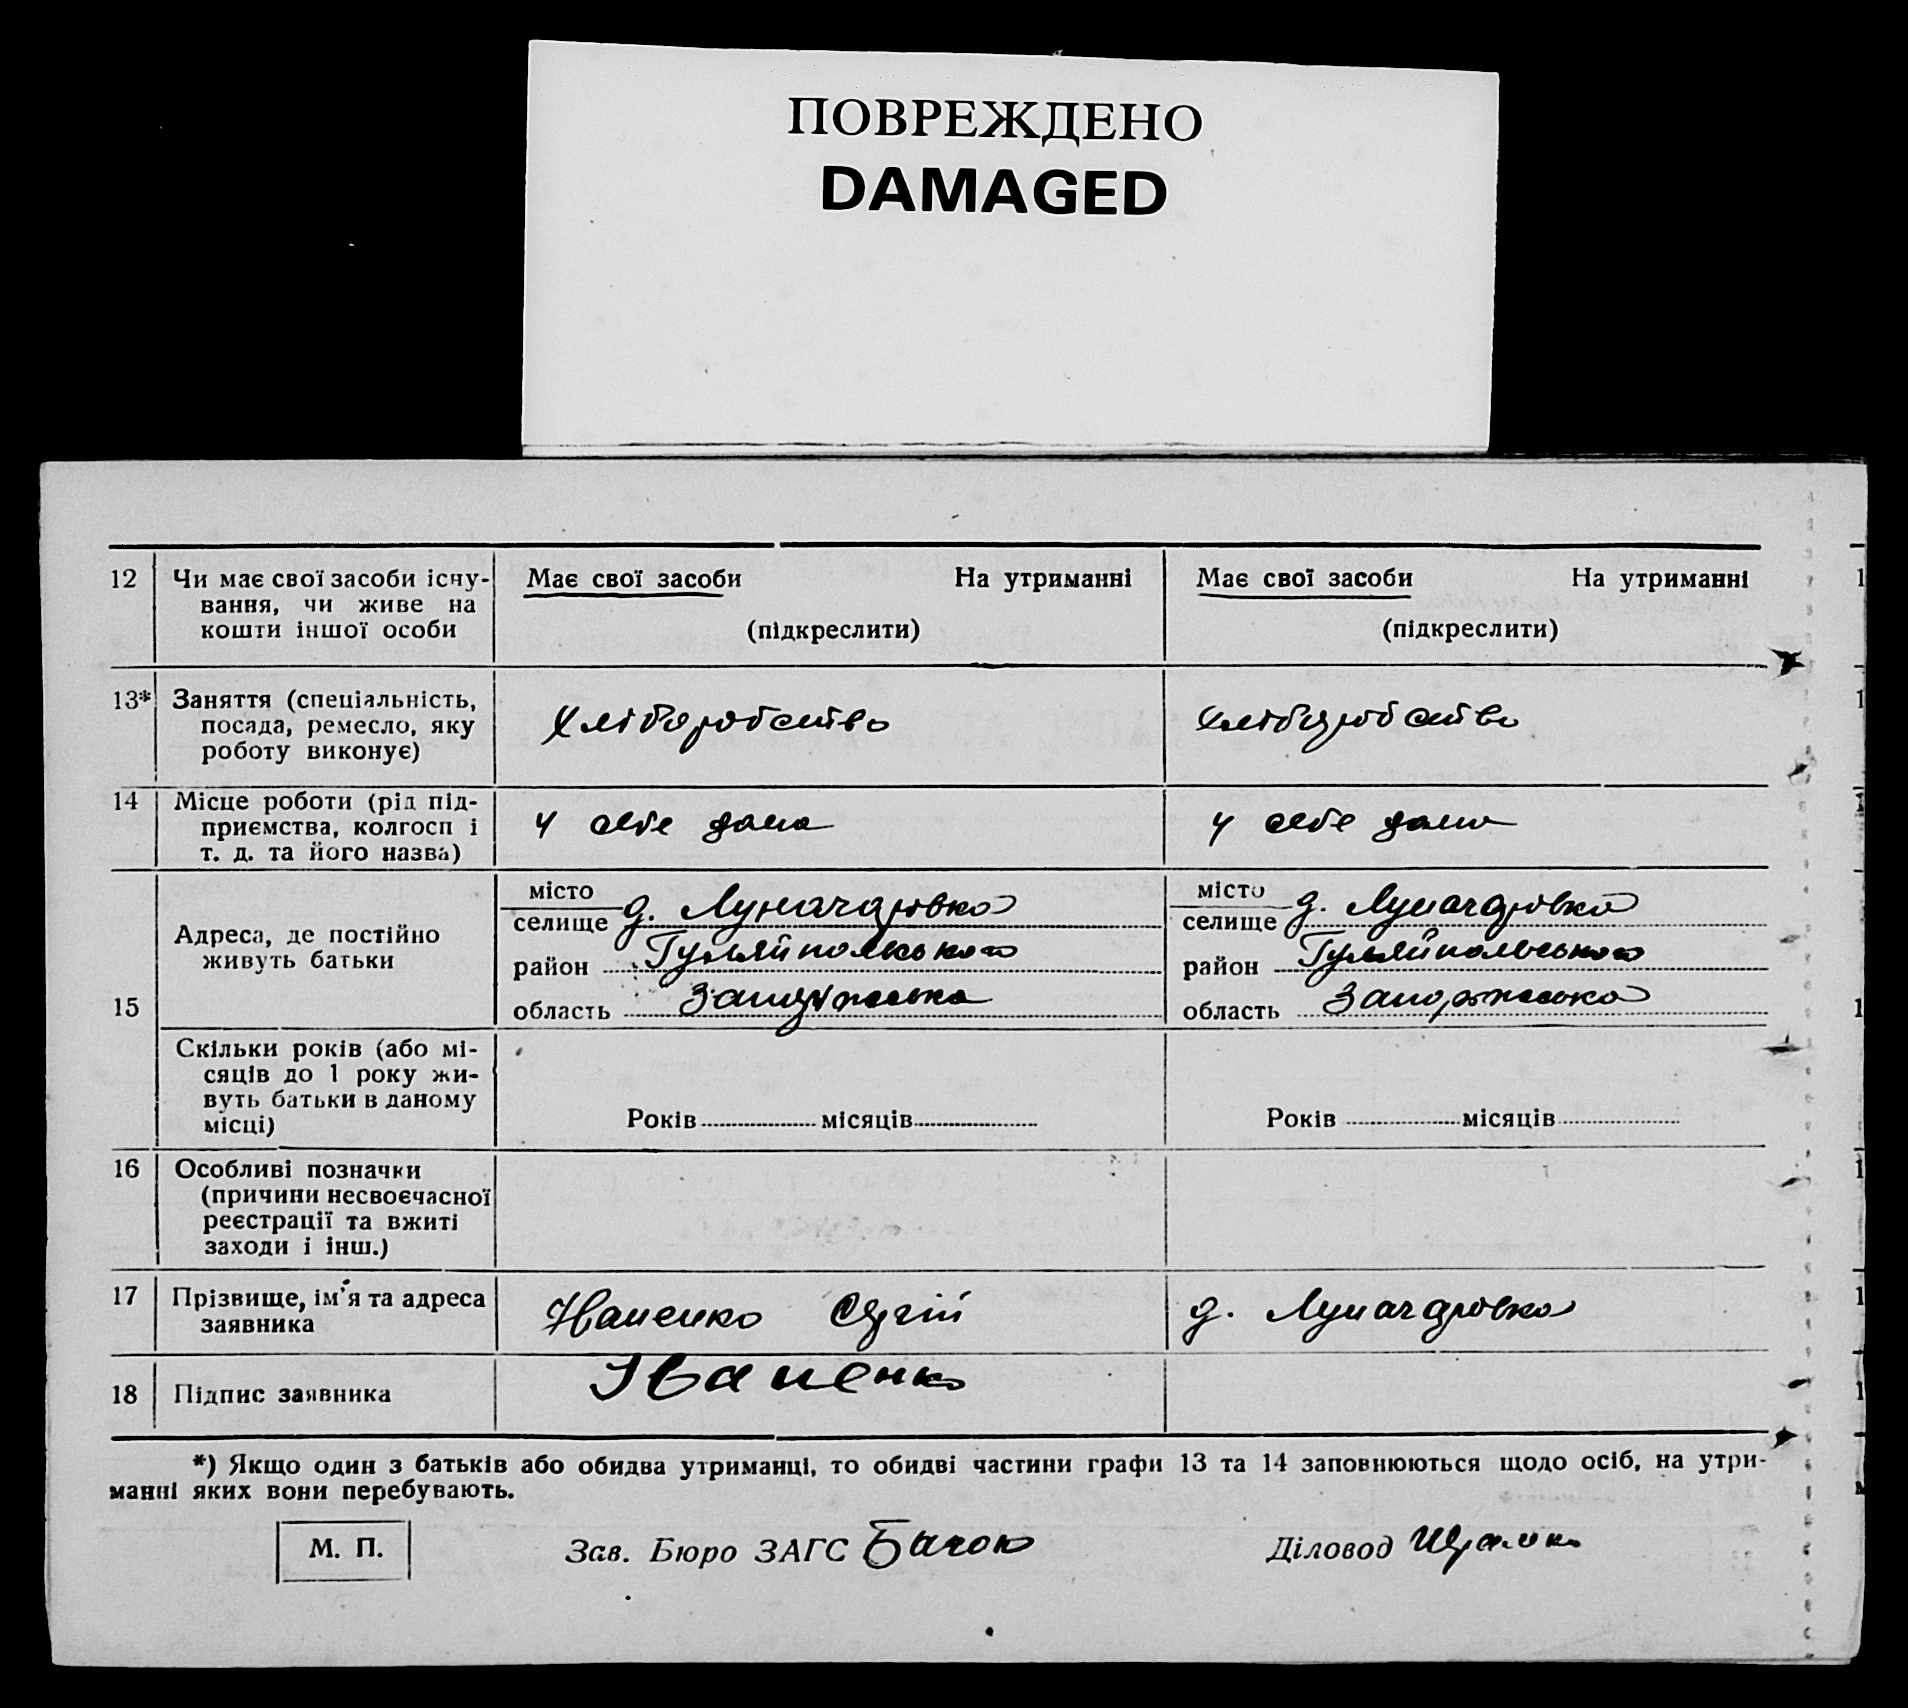 ПОВРЕЖДЕНО
DAMAGED
12 Чи має свої засоби існу- Має свої засоби На утриманні Має свої засоби На утриманні
вання, чи живе на
кошти іншої особи (підкреслити) (підкреслити)
13* Заняття (спеціальність,
посада, ремесло, яку Хліборобство Хліборобство
роботу виконує)
14 Місце роботи (рід під-
приємства, колгосп і у себе дома у себе дома
т. д. та його назва)
місто місто
селище д. селище д.
Адреса, де постійно
живуть батьки район Гуляйпольського район Гуляйпольського
15 область Запоріжська область Запоріжська
Скільки років (або мі-
сяців до 1 року жи-
вуть батьки в даному
місці) Років місяців Років місяців
16 Особливі позначки
(причини несвоєчасної
реєстрації та вжиті
заходи і інш.)
17 Прізвище, ім'я та адреса Сергій д.
заявника
18 Підпис заявника
*) Якщо один з батьків або обидва утриманці, то обидві частини графи 13 та 14 заповнюються щодо осіб, на утри-
манні яких вони перебувають.
М. П. Зав. Бюро ЗАГС Діловод